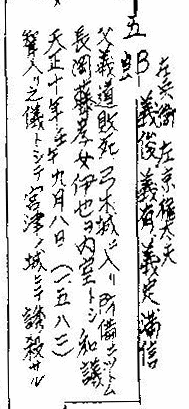 左兵衛 左京権太夫
五郎 義俊 義有 義定 満信
父義道敗死 弓木城ニ入リ守備ニツトム
長岡藤孝女伊也ヲ内室トシ和議
天正十年壬午九月八日(一五八二)
聟入リ之儀トシテ宮津ノ城ニテ誘殺サル